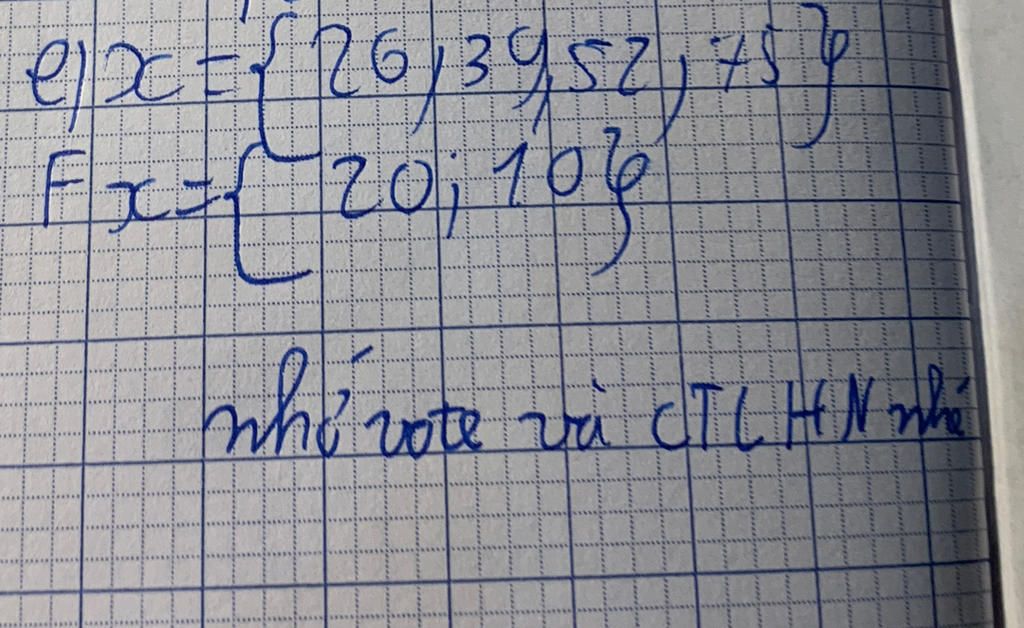 e) x = { 26, 39, 52, 75 }
F x = { 20; 10 }
nhớ vote và CTLHN nhé